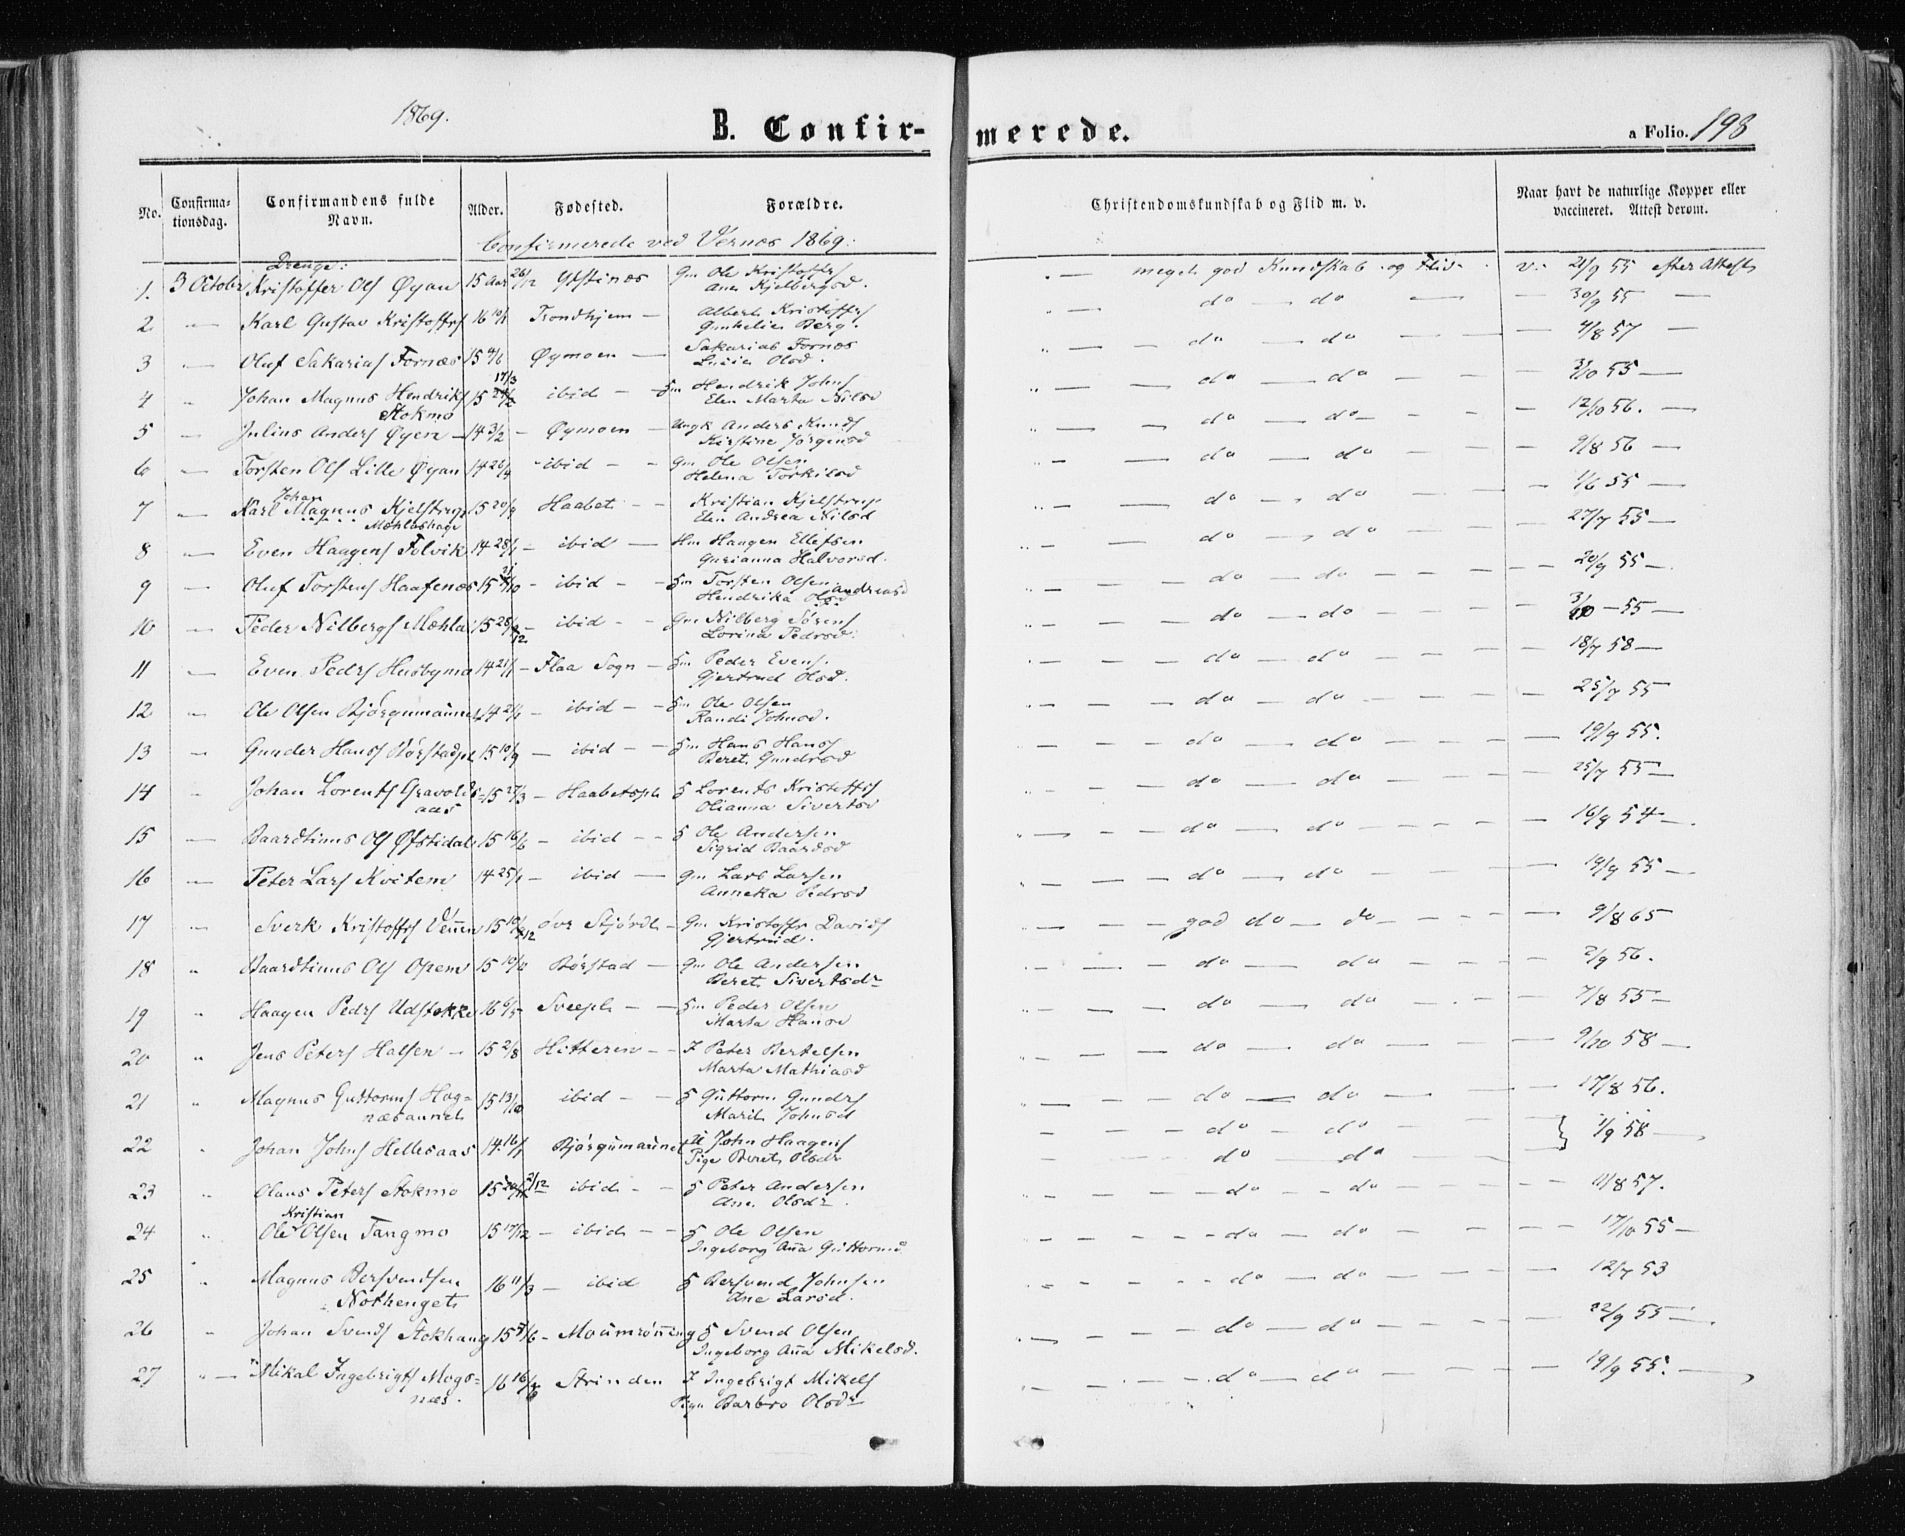 1869.
B. Confir-
merede.
a Folio. 198
No. Confirma-tionsdag. Confirmandens fulde Navn. Alder. Fødested. Forældre. Christendomskundskab og Flid m. v. Naar havt de naturlige Kopper eller vaccineret. Attest derom.
Confirmerede ved Vernes 1869.
Drenge:
1. 3 October Kristoffer Ols Øyan 15 Aar 26/12 Gm Ole Kristoffs meget god Kundskab og Flid v. 21/9 55 efter Attest
2 Karl Gustav Kristoffs 16 10/1 Trondhjem Albert Kristoffs do do 30/9 55
Berg.
3 Oluf Sakarias Fornæs 15 Øymoen Sakarias Fornes do do 4/8 57
Olsd.
17/3
4 Johan Magnus Hendriks 15 ibid 5m Hendrik Johns do do 3/10 55
Stokmo Elen Marta Nilsd
5 Julius Anders Øyen 14 3/2 Øymoen Ungk Anders Knuds do do 12/10 56.
Kirstine Jørgensd
6 Torsten Ols Lille Øyan 14 26/4 ibid Gm Ole Olsen do do 9/8 56
Helena Torkilsd
Johan
7 Karl Magnus Kjelstrup 15 20/9 Haabet Kristian Kjelstrup do do 1/6 55
Mæhlashage Elen Andrea Nilsd
8 Even Haagens Folvik 14 28/1 ibid Hm Haagen Ellefsen do do 27/7 55
Gurianna Halvorsd.
9 Oluf Torstens Haafenæs 15 ibid 5m Torsten Olsen do do 20/9 55
Hendrika Olsd Andreasd
10 Peder Nilbergs Mæhla 15 ibid Gm Nilberg Sørens do do 3/ 55
Lorina Pedrsd.
11 Even Pedrs Husbymo 14 21/1 Flaa Sogn 5m Peder Evens. do do 18/7 58
Gjertrud Olsd.
12 Ole Olsen Bjørgumaunet 14 ibid 5m Ole Olsen do do 25/7 55
Randi Johnsd.
13 Gunder Hans Børstadpl 15 10/9 ibid 5m Hans Hans do do 19/9 55.
Beret Gundrsd
14 Johan Lorents Gravolds= 15 27/3 Haabetspl 5 Lorents Kristoffs do do 25/7 55
aas Olianna Sivertsd
15 Baardtinus Ols Øfstidal 15 16/6 ibid 5 Ole Andersen do do 16/9 54
Sigrid Baardsd
16 Peter Lars Kvitem 14 25/1 ibid Gm Lars Larsen do do 19/9 55
Anneka Pedrsd
17 Sverk Kristoffs Vennen 15 Øvr Stjørdl Gm Kristoffr Davids god do do 9/8 65
Gjertrud.
18 Baardtinus Ols Opem 15 Børstad Gm Ole Andersen do do 2/9 56.
Beret Sivertsdr
19 Haagen Pedrs Udstokke 16 6/5 Sveepl 5m Peder Olsen do do 7/8 55
Marta Hansd
20 Jens Peters Halsen 15 2/8 Hitteren I Peter Bertelsen do do 9/10 58
Marta Mathiasd
21 Magnus Guttorms Hog= 15 13/10 ibid 5 Guttorm Gundrs do do 17/8 56.
næsaunet Marit Johnsd
22 Johan Johns Hellesaas 14 16/1 Bjørgumaunet U John Haagens do do 1/9 58
Pige Beret Olsdr do do
23 Olaus Peters Stokmo 15 ibid 5 Peter Andersen do do 11/8 57.
Ane Olsdr
Kristian
24 Ole Olsen Tangmo 15 17/12 ibid 5 Ole Olsen do do 17/10 55
Ingeborg Anna Guttormsd
25 Magnus Bersvendsen 16 11/3 ibid 5 Bersvend Johnsen do do 12/7 53
Nothenget Ane Larsd.
26 Johan Svends Stokhaug 15 5/6 Moumrønning 5 Svend Olsen do do 22/9 55
Ingeborg Anna Mikelsd.
27 Mikal Ingebrigts Mogs= 16 Strinden I Ingebrigt Mikels do do 19/9 55.
næs. Barbro Olsdr